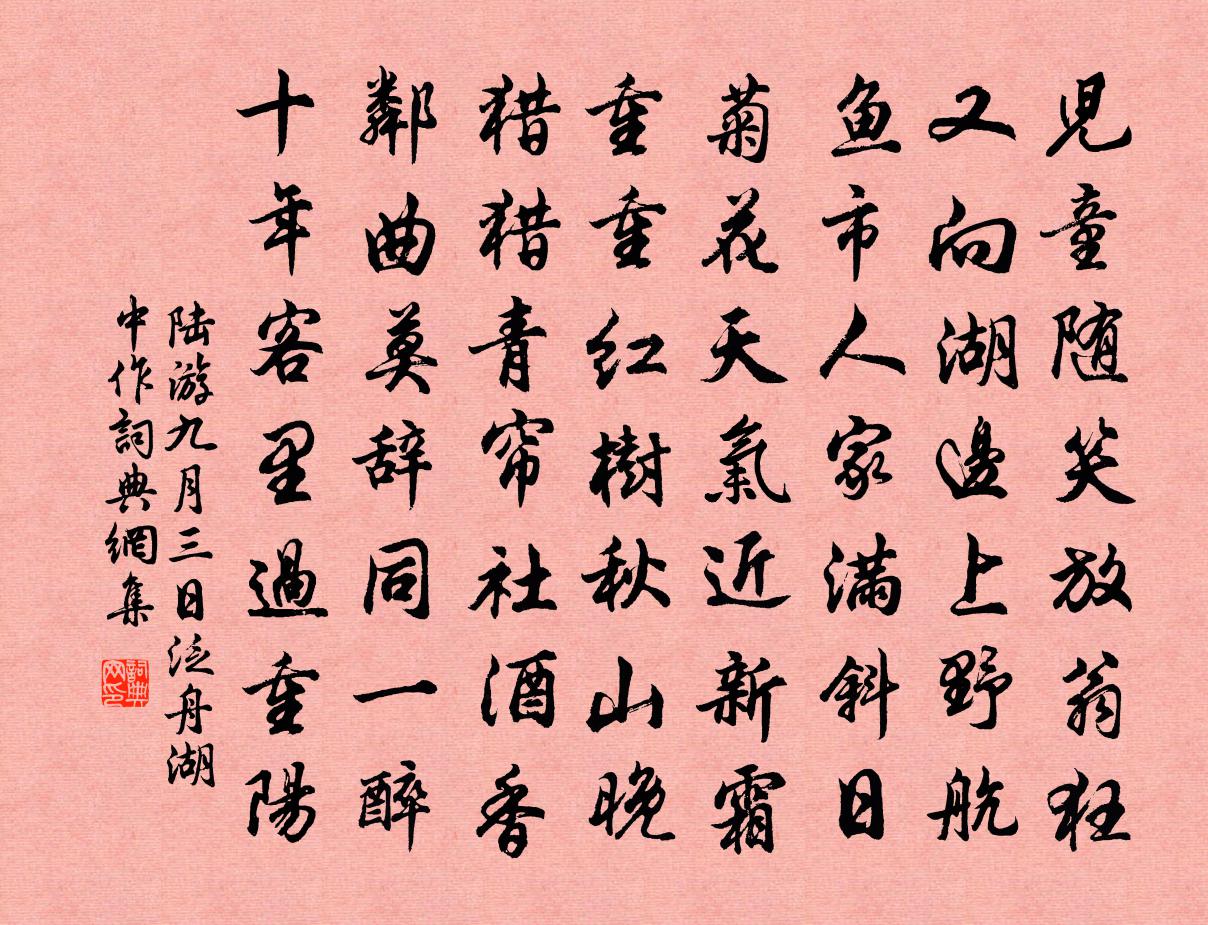 児童随笑放翁狂
又向湖邊上野航
鱼市人家满斜日
菊花天氣近新霜
重重红樹秋山晚
猎猎青帘社酒香
鄰曲莫辞同一醉
十年客里過重陽
陆游九月三日泛舟湖
中作詞典網集
詞典网印